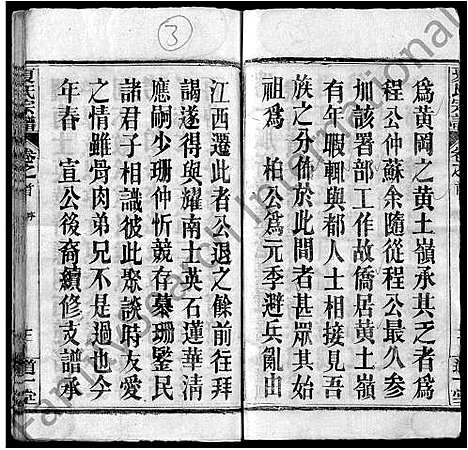 為黃岡之黃土嶺承其乏者為
程公仲蘇余隨從程公最久參
加該署部工作故僑居黃土嶺
有年暇輒與都人士相接見吾
族之分佈於此間者甚眾其始
祖為　柏公為元季避兵亂由
③
江西遷此者公退之餘前往拜
謁遂得與耀南士英石蓮華清
應嗣少珊仲忻競存慕珊鑒民
諸君子相識彼此聚談時友愛
之情雖骨肉弟兄不是過也今
年春　宣公後裔續修支譜承
夏氏宗譜
卷之首
序
道一堂
FamilySearch International